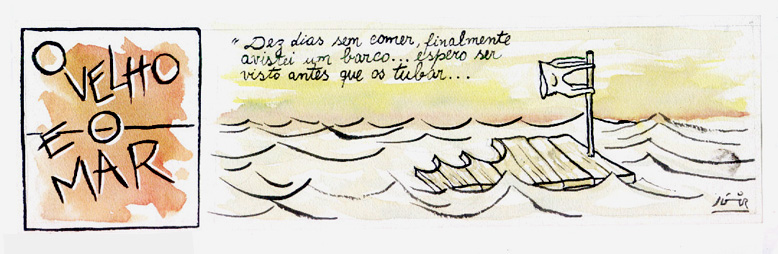 O VELHO
E O
MAR
"Dez dias sem comer, finalmente
avistei um barco... espero ser
visto antes que os tubar...